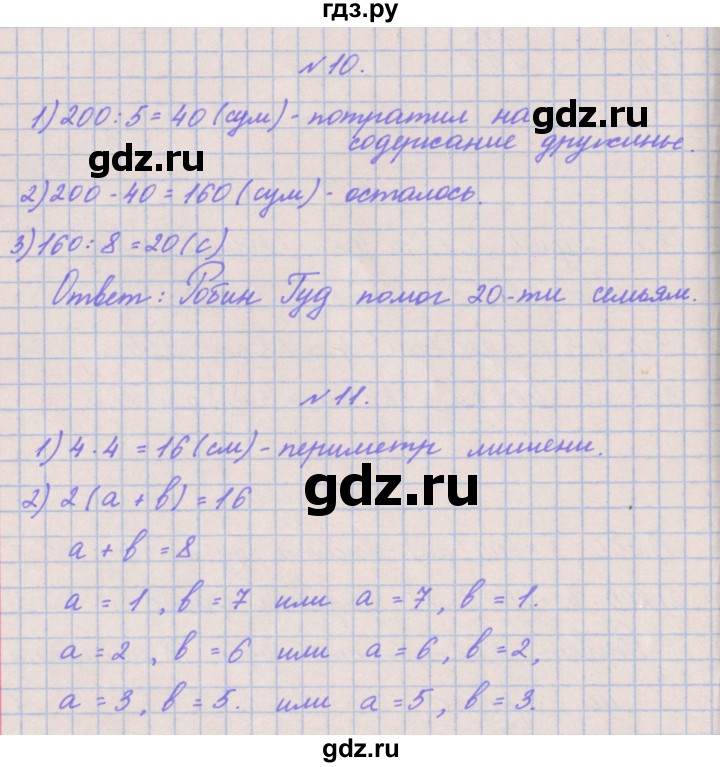 гдз.ру
№10.
1) 200 : 5 = 40 (сум) - потратил на
содержание дружины.
gdz.ru
gdz.ru
2) 200 - 40 = 160 (сум) - осталось.
3) 160 : 8 = 20 (с)
Ответ: Робин Гуд помог 20-ти семьям.
№11.
1) 4 · 4 = 16 (см) - периметр мишени.
2) 2 (а + в) = 16
gdz.ru
а + в = 8
а = 1, в = 7 или а = 7, в = 1.
а = 2, в = 6 или а = 6, в = 2,
а = 3, в = 5. или а = 5, в = 3.
gdz.ru